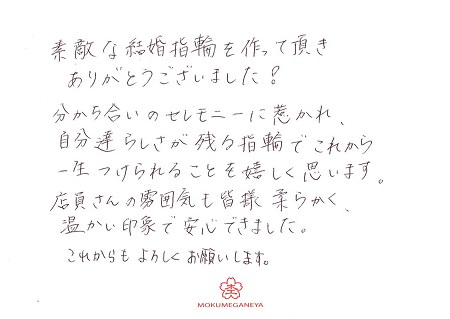 素敵な結婚指輪を作って頂き
ありがとうございました!
分かち合いのセレモニーに惹かれ、
自分達らしさが残る指輪でこれから
一生つけられることを嬉しく思います。
店員さんの雰囲気も皆様柔らかく、
温かい印象で安心できました。
これからもよろしくお願いします。
MOKUMEGANEYA